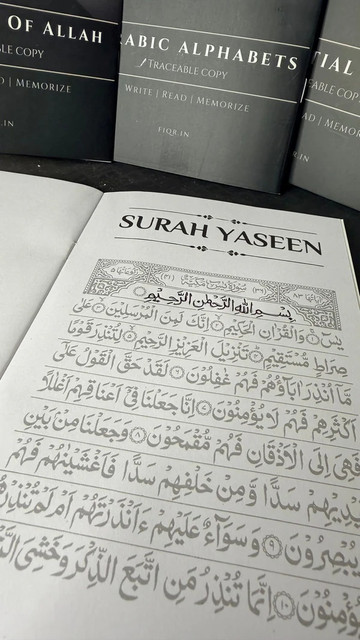 OF ALLAH
COPY
D | MEMORIZE
IQR.IN
ABIC ALPHABETS
TRACEABLE COPY
WRITE | READ | MEMORIZE
FIQR.IN
TIAL
ABLE COP
AD | MEMOR
R.IN
SURAH YASEEN
بِسْمِ اللهِ الرَّحْمٰنِ الرَّحِيْمِ
يٰسٓ ۝١ وَالْقُرْاٰنِ الْحَكِيْمِ ۝٢ اِنَّكَ لَمِنَ الْمُرْسَلِيْنَ ۝٣ عَلٰى
صِرَاطٍ مُّسْتَقِيْمٍ ۝٤ تَنْزِيْلَ الْعَزِيْزِ الرَّحِيْمِ ۝٥ لِتُنْذِرَ قَوْمًا
مَّاۤ اُنْذِرَ اٰبَآؤُهُمْ فَهُمْ غٰفِلُوْنَ ۝٦ لَقَدْ حَقَّ الْقَوْلُ عَلٰۤى
اَكْثَرِهِمْ فَهُمْ لَا يُؤْمِنُوْنَ ۝٧ اِنَّا جَعَلْنَا فِيْۤ اَعْنَاقِهِمْ اَغْلٰلًا
فَهِيَ اِلَى الْاَذْقَانِ فَهُمْ مُّقْمَحُوْنَ ۝٨ وَجَعَلْنَا مِنْۢ بَيْنِ
يْدِيْهِمْ سَدًّا وَّمِنْ خَلْفِهِمْ سَدًّا فَاَغْشَيْنٰهُمْ فَهُمْ
يُبْصِرُوْنَ ۝٩ وَسَوَآءٌ عَلَيْهِمْ ءَاَنْذَرْتَهُمْ اَمْ لَمْ تُنْذِرْ
يُؤْمِنُوْنَ ۝١٠ اِنَّمَا تُنْذِرُ مَنِ اتَّبَعَ الذِّكْرَ وَخَشِيَ